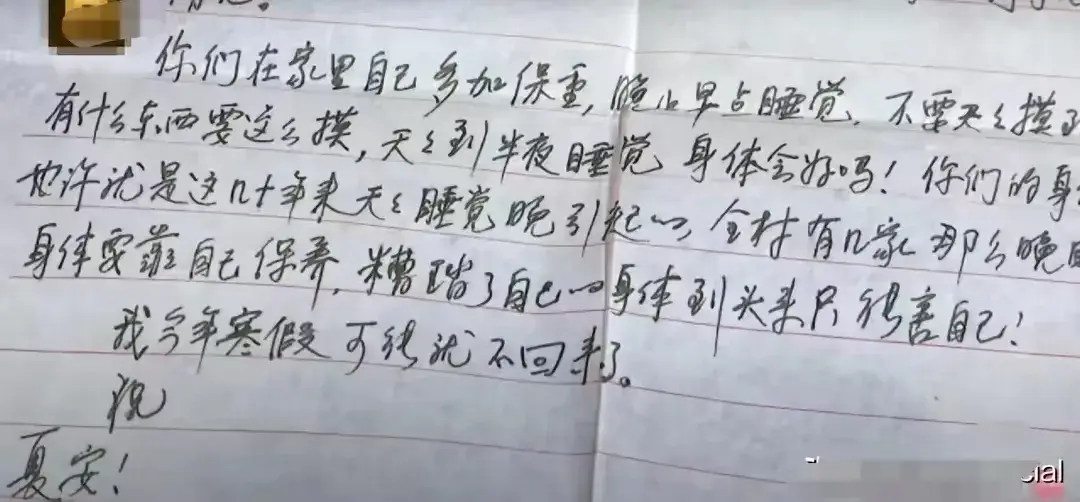 你们在家里自己多加保重，晚上早点睡觉．不要天天摸到
有什么东西要这么摸，天天到半夜睡觉身体会好吗！你们的身
也许就是这几十年来天天睡觉晚引起的，全村有几家那么晚睡
身体要靠自己保养，糟踏了自己的身体到头来只能害自己！
我今年寒假可能就不回来了。
祝
夏安！
cial